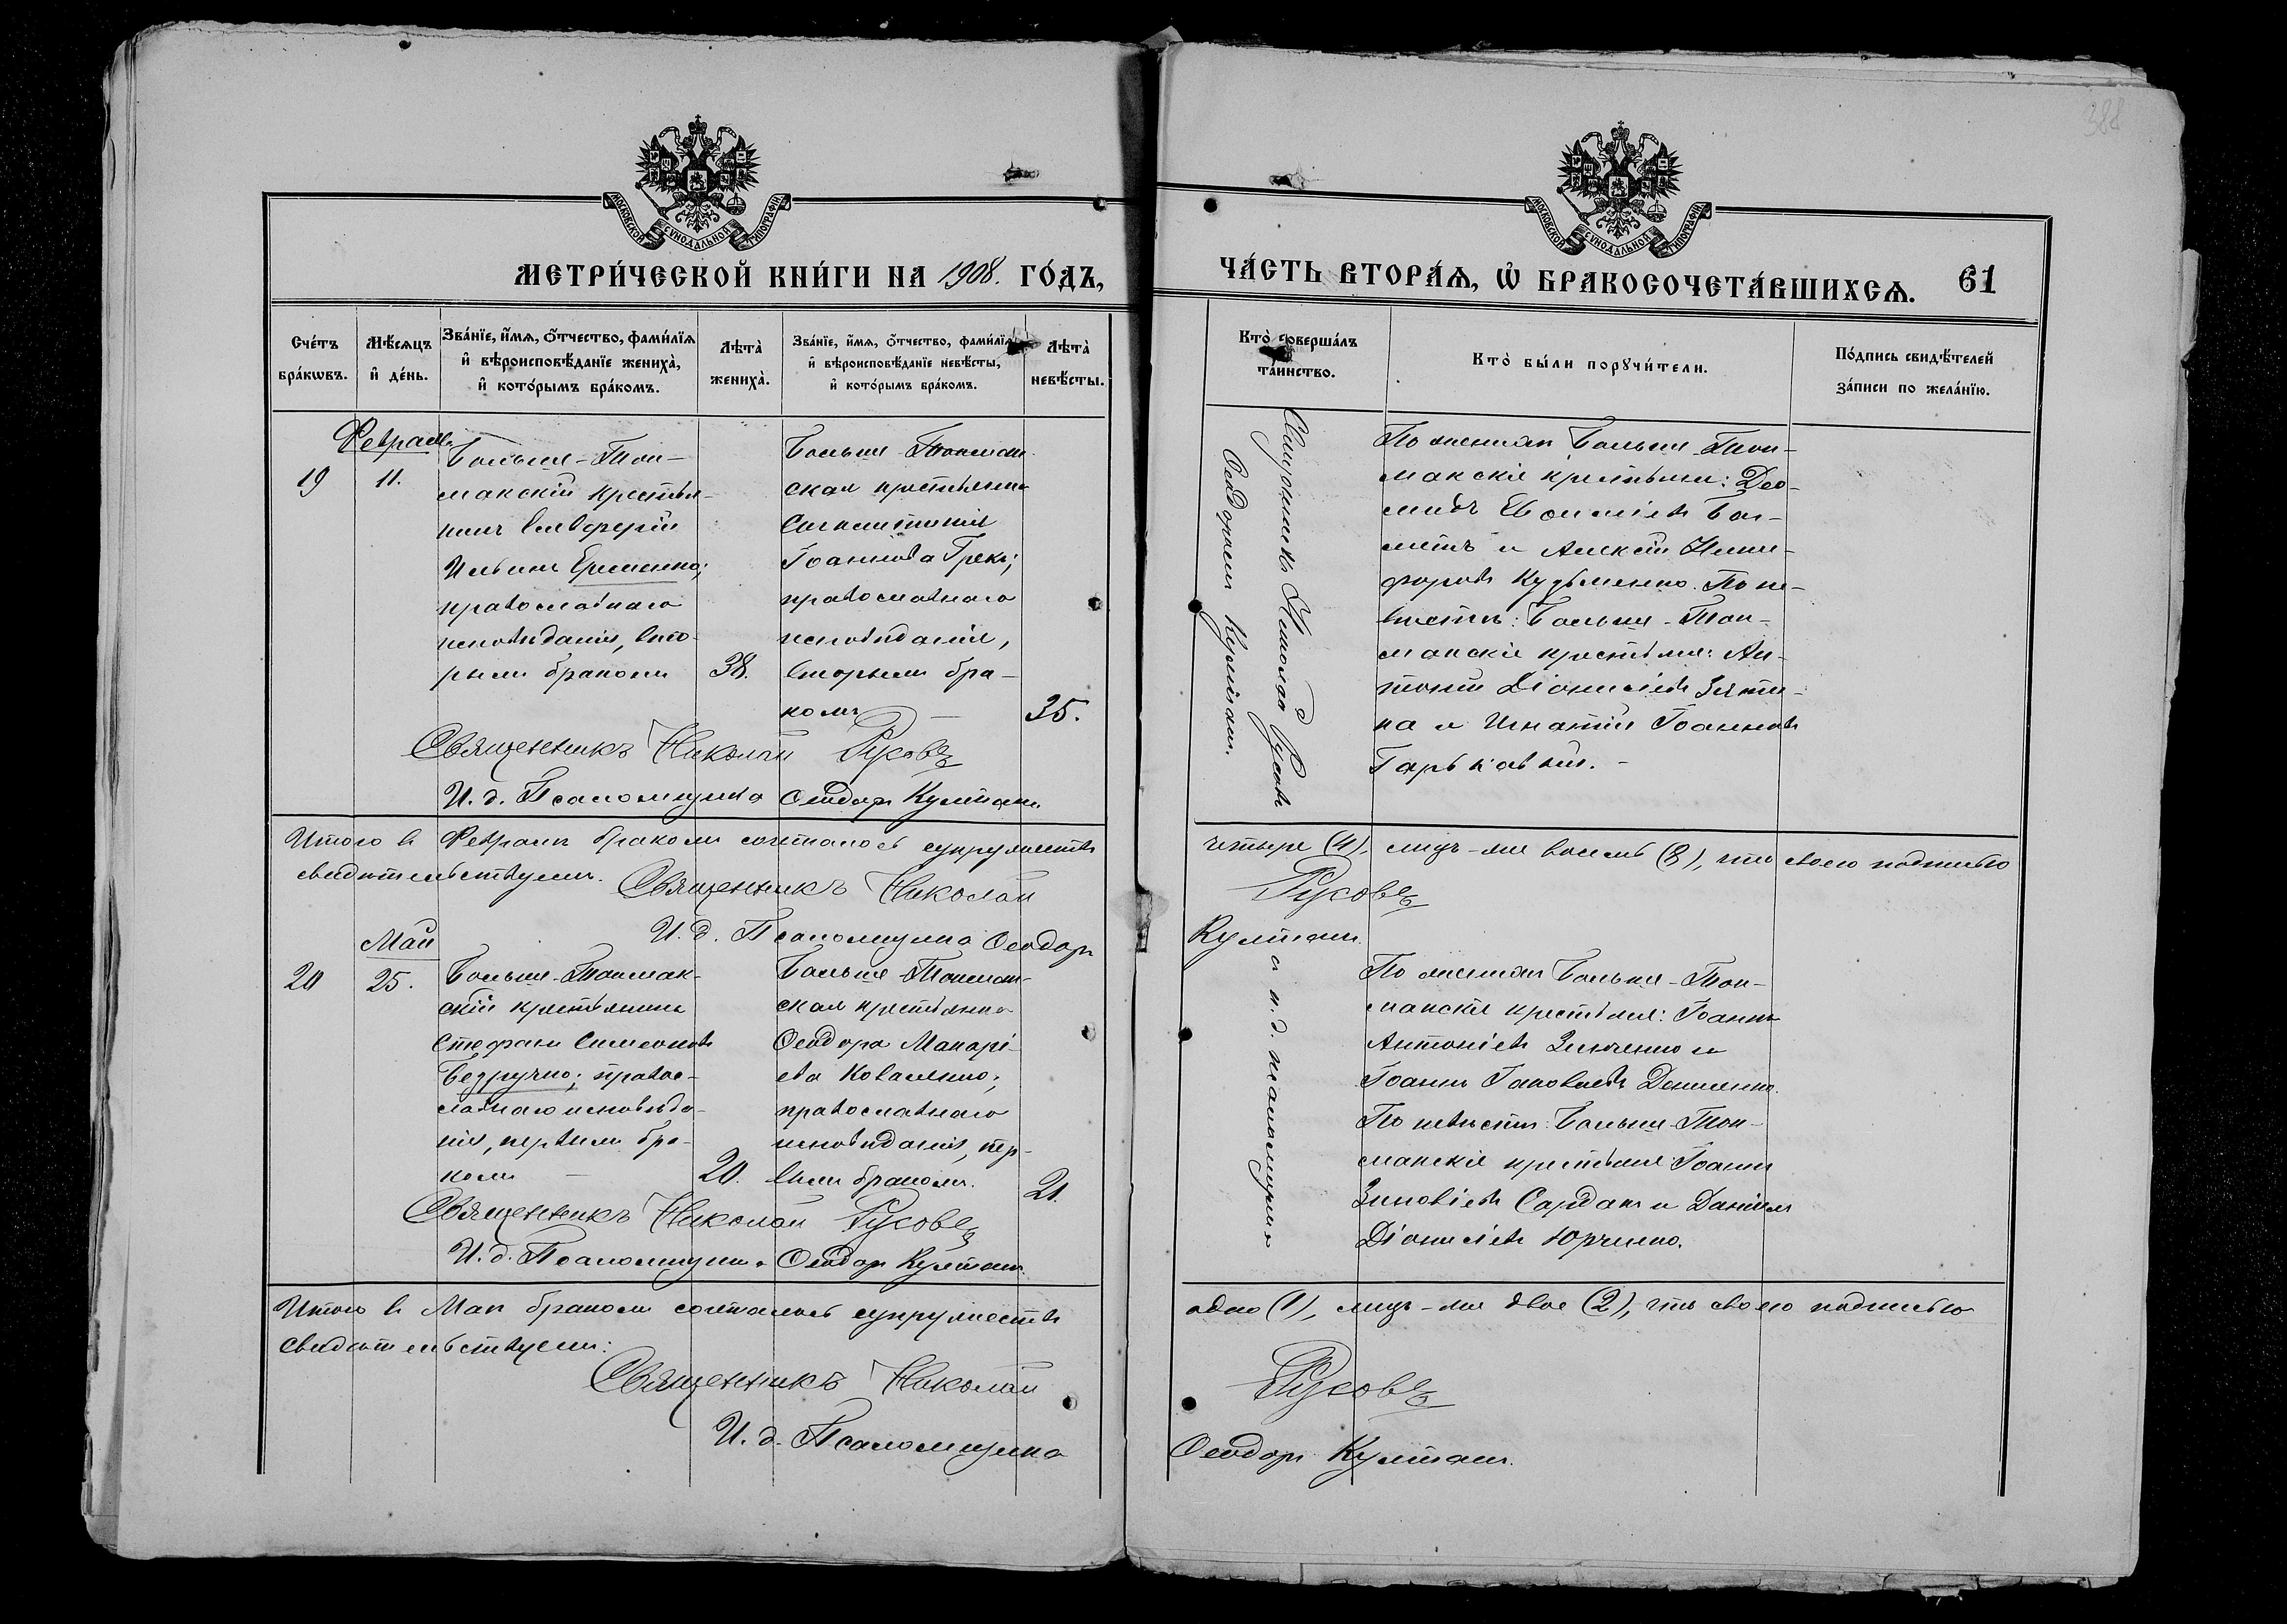 388
МОСКОВСКОЙ СѴНОДАЛЬНОЙ ТИПОГРАФІИ
МЕТРИ́ЧЕСКОЙ КНИ́ГИ НА 1908. ГО́ДЪ,
Сче́тъ бра́кѡвъ.
Мѣ́сяцъ и҆ де́нь.
Зва́нїе, и҆́мѧ, ѻ҆́тчество, фами́лїѧ
и҆ вѣроисповѣ́данїе жениха̀,
и҆ кото́рымъ бра́комъ.
Лѣта̀ жениха̀.
Зва́нїе, и҆́мѧ, ѻ҆́тчество, фами́лїѧ
и҆ вѣроисповѣ́данїе невѣ́сты,
и҆ кото́рымъ бра́комъ.
Лѣта̀ невѣ́сты.
Февраль
19
11.
Больше-Ток-
макскій крестья-
нинъ Елевферій
Ильинъ Еременко;
православнаго
исповѣданія, вто-
рымъ бракомъ
38.
Больше-Токмак-
ская крестьянка
Іоаннова Грекъ;
православнаго
исповѣданія,
вторымъ бра-
комъ
35.
Священникъ Николай Русовъ
И. д. Псаломщика Ѳеодоръ Култашъ
Итого въ Февралѣ бракомъ сочталось супружествъ
свидѣтельствуемъ. Священникъ Николай
И. д. Псаломщика Ѳеодоръ
Май
20
25.
Больше-Токмак-
скій крестьянинъ
Стефанъ Симеоновъ
Безручко; правос-
лавнаго исповѣда-
нія, первымъ бра-
комъ
20.
Больше-Токмак-
ская крестьянка
Ѳеодора Макарі-
ева Коваленко;
православнаго
исповѣданія, пер-
вымъ бракомъ.
21.
Священникъ Николай Русовъ
И. д. Псаломщика Ѳеодоръ Култашъ.
Итого въ Маѣ бракомъ сочталось супружествъ
свидѣтельствуемъ:
Священникъ Николай
И. д. Псаломщика
МОСКОВСКОЙ СѴНОДАЛЬНОЙ ТИПОГРАФІИ
ЧА́СТЬ ВТОРА́Ѧ, Ѡ҆ БРАКОСОЧЕТА́ВШИХСѦ. 61
Кто̀ соверша́лъ
та́инство.
Кто̀ бы́ли порꙋчи́тели.
По́дпись свидѣ́телей
за́писи по жела́нїю.
Священникъ Николай Русовъ
Ѳеодоромъ Култашъ.
а и. д. псаломщика
По женихѣ Больше-Ток-
макскіе крестьяне: Дио-
мидъ и Алексій Ники-
форовъ Кузьменко. По не-
вѣстѣ: Больше-Ток-
макскіе крестьяне: Ан-
тоній Діонисіевъ
и Игнатій Іоанновъ
Гарьковый.
четыре (4), лицъ-же восемь (8), что своею подписью
Русовъ
Култашъ.
По женихѣ Больше-Ток-
макскіе крестьяне: Іоаннъ
Антоніевъ Зинченко и
Іоаннъ Іаковлевъ Демченко.
По невѣстѣ: Больше-Ток-
макскіе крестьяне Іоаннъ
Зиновіевъ Сардакъ и Даніилъ
Діонисіевъ Юрченко.
одно (1), лицъ-же двое (2), что своею подписью
Русовъ
Ѳеодоръ Култашъ.